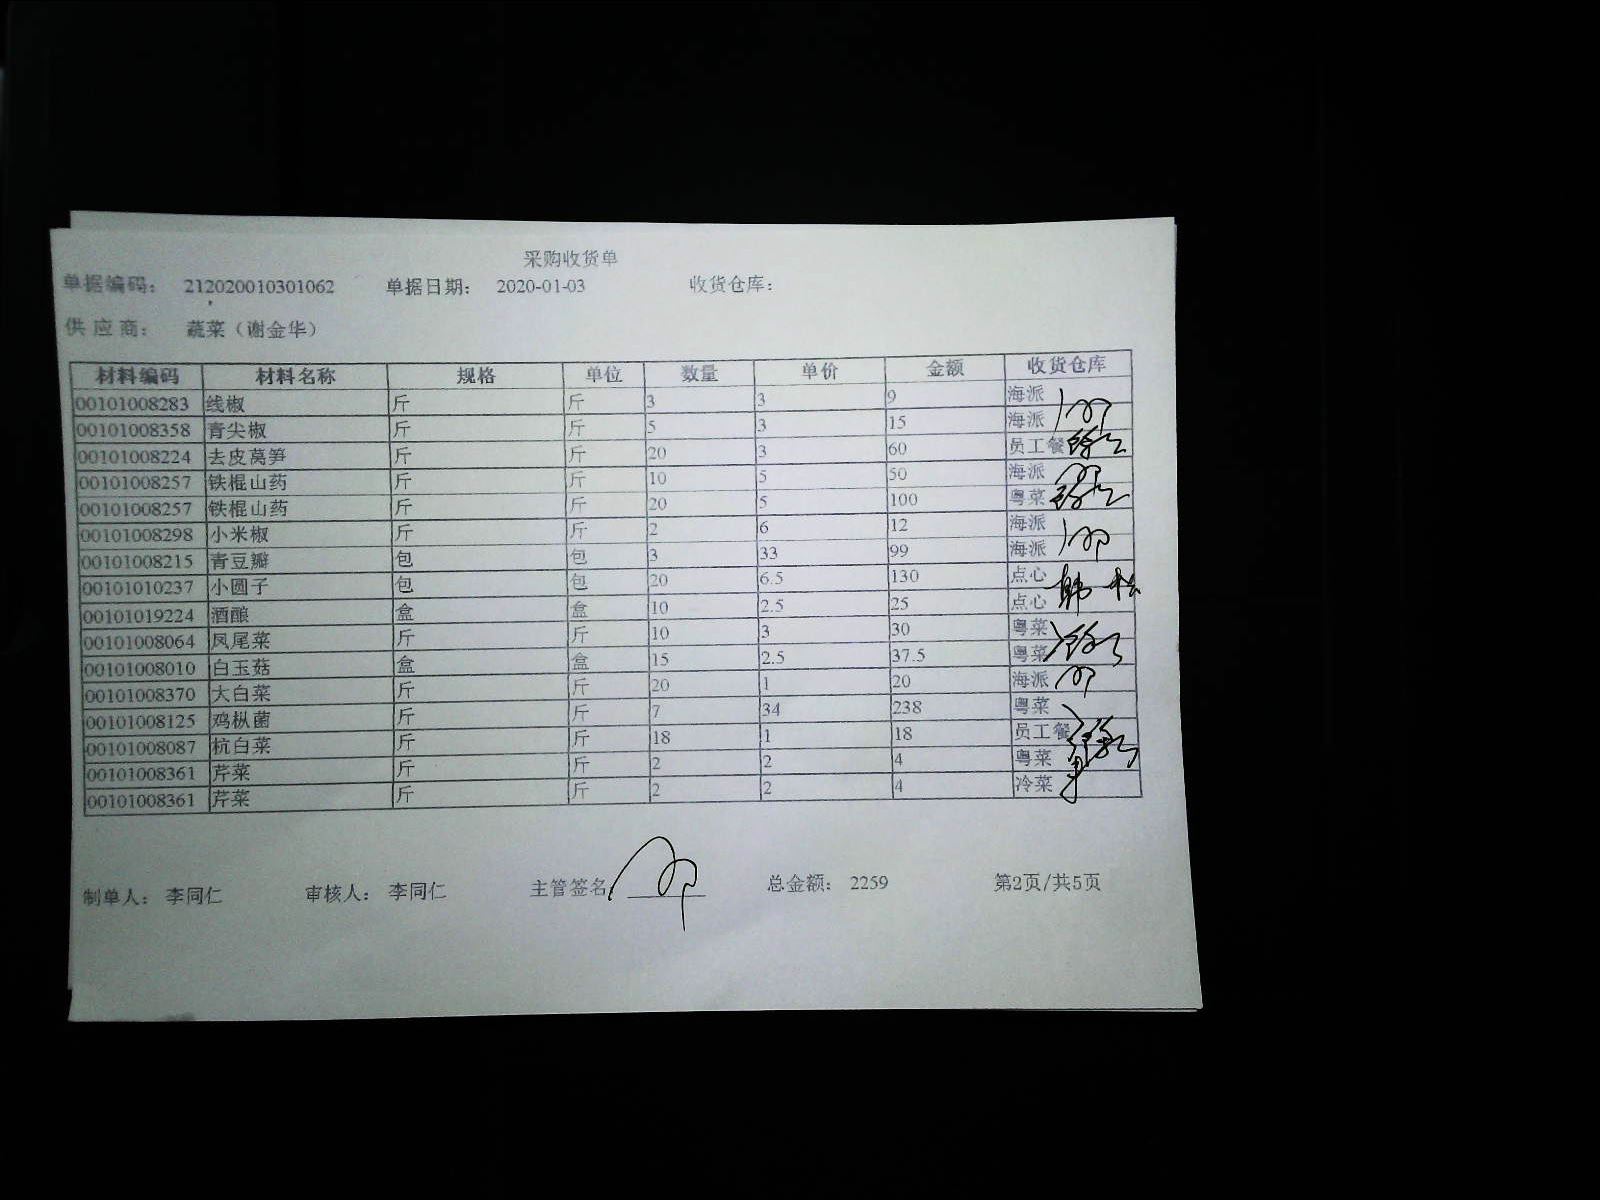 采购收货单
单据编码： 212020010301062 单据日期： 2020-01-03 收货仓库：
供 应 商： 蔬菜（谢金华）
材料编码 材料名称 规格 单位 数量 单价 金额 收货仓库
00101008283 线椒 斤 斤 3 3 9 海派
00101008358 青尖椒 斤 斤 5 3 15 海派
00101008224 去皮莴笋 斤 斤 20 3 60 员工餐
00101008257 铁棍山药 斤 斤 10 5 50 海派
00101008257 铁棍山药 斤 斤 20 5 100 粤菜
00101008298 小米椒 斤 斤 2 6 12 海派
00101008215 青豆瓣 包 包 3 33 99 海派
00101010237 小圆子 包 包 20 6.5 130 点心
00101019224 酒酿 盒 盒 10 2.5 25 点心
00101008064 凤尾菜 斤 斤 10 3 30 粤菜
00101008010 白玉菇 盒 盒 15 2.5 37.5 粤菜
00101008370 大白菜 斤 斤 20 1 20 海派
00101008125 鸡枞菌 斤 斤 7 34 238 粤菜
00101008087 杭白菜 斤 斤 18 1 18 员工餐
00101008361 芹菜 斤 斤 2 2 4 粤菜
00101008361 芹菜 斤 斤 2 2 4 冷菜
制单人： 李同仁 审核人： 李同仁 主管签名 总金额： 2259 第2页/共5页